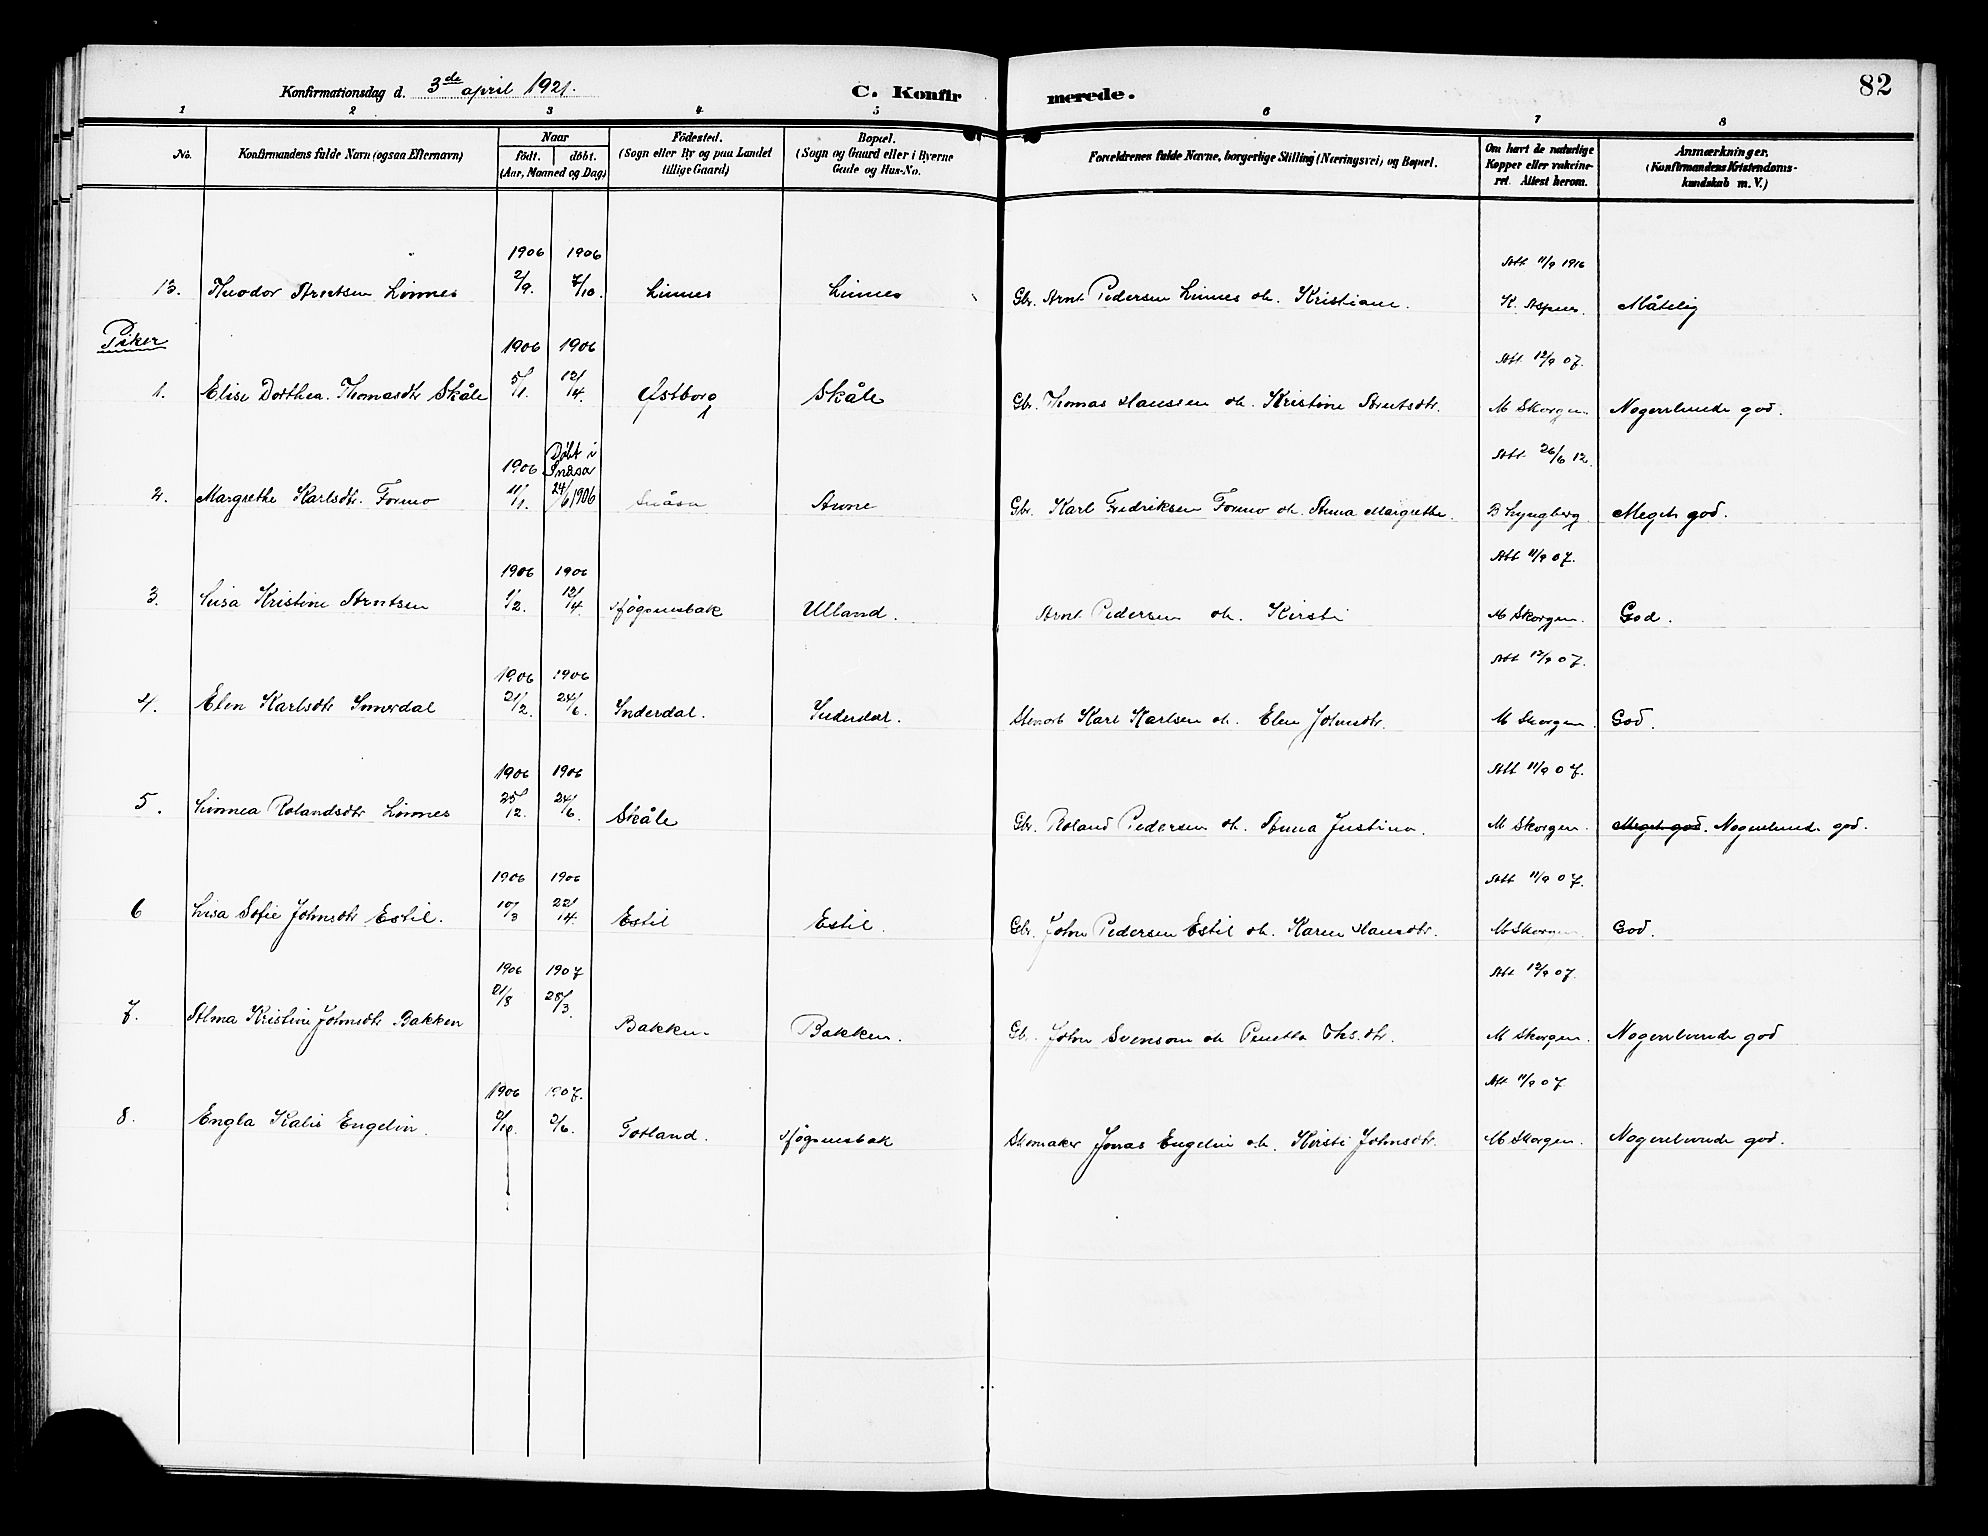 82
Konfirmationsdag d. 3de april 1921.
C. Konfirmerede.
1 2 3 4 5 6 7 8
No.
Konfirmandens fulde Navn (ogsaa Efternavn)
Naar
födt. döbt.
(Aar, Maaned og Dag)
Födested.
(Sogn eller By og paa Landet
tillige Gaard)
Bopæl.
(Sogn og Gaard eller i Byerne
Gade og Hus-No.
Forældrenes fulde Navne, borgerlige Stilling (Næringsvei) og Bopæl.
Om havt de naturlige
Kopper eller vakcine-
ret. Attest herom.
Anmærkninger.
(Konfirmandens Kristendoms-
kundskab m. V.)
1906 1906 Att 11/9 1916
13. Theodor Arntsen Linnes 2/9. 7/10. Linnes Linnes Gbr. Arnt Pedersen Linnes oh. Kristiane. K. Aspnes. Måtelig
Piker
1906 1906 Att 12/9 07.
1. Elise Dorthea Thomasdtr Skåle 5/1. 12/4. Østborg Skåle Gbr. Thomas Hanssen oh. Kristine Arntsdtr. M Skorgen Nogenlunde god.
1906 Døbt i Snåsa Att 26/6 12.
2. Margrethe Karlsdtr. Formo 11/1. 24/6 1906 Snåsa Gbr. Karl Fredriksen Formo oh. Anna Margrethe. B Lyngberg Meget god.
1906 1906 Att 11/9 07.
3. Lisa Kristine Arntsen 1/2. 12/4. Ulland. Arnt Pedersen oh. Kirsti M Skorgen. God.
1906 1906 Att 12/9 07.
4. Elen Karlsdtr Innerdal 21/2. 24/6. Inderdal. Inderdal. Karl Karlsen oh. Elen Johnsdtr. M Skorgen. God.
1906 1906 Att 11/9 07.
5. Linnea Rolandsdtr Linnes 25/12. 24/6. Skåle Gbr. Roland Pedersen oh. Anna Justina. M Skorgen. Meget god. Nogenlunde god.
1906 1906 Att 11/9 07.
6 Lisa Sofie Johnsdtr Estil. 10/3 22/14. Estil Estil. Gbr. John Pedersen Estil oh. Karen Hansdtr. M Skorgen God.
1906 1907 Att 12/9 07.
7. Alma Kristine Johnsdtr Bakken 21/8 28/3. Bakken. Bakken. Gb. John Svensson oh M Skorgen. Nogenlunde god
1906 1907. Att 11/9 07
8. Engla Kalis Engelin. 2/10. 2/6. Totland. Skomaker Jonas Engelin oh. Kirsti Johnsdtr. M Skorgen. Nogenlunde god.